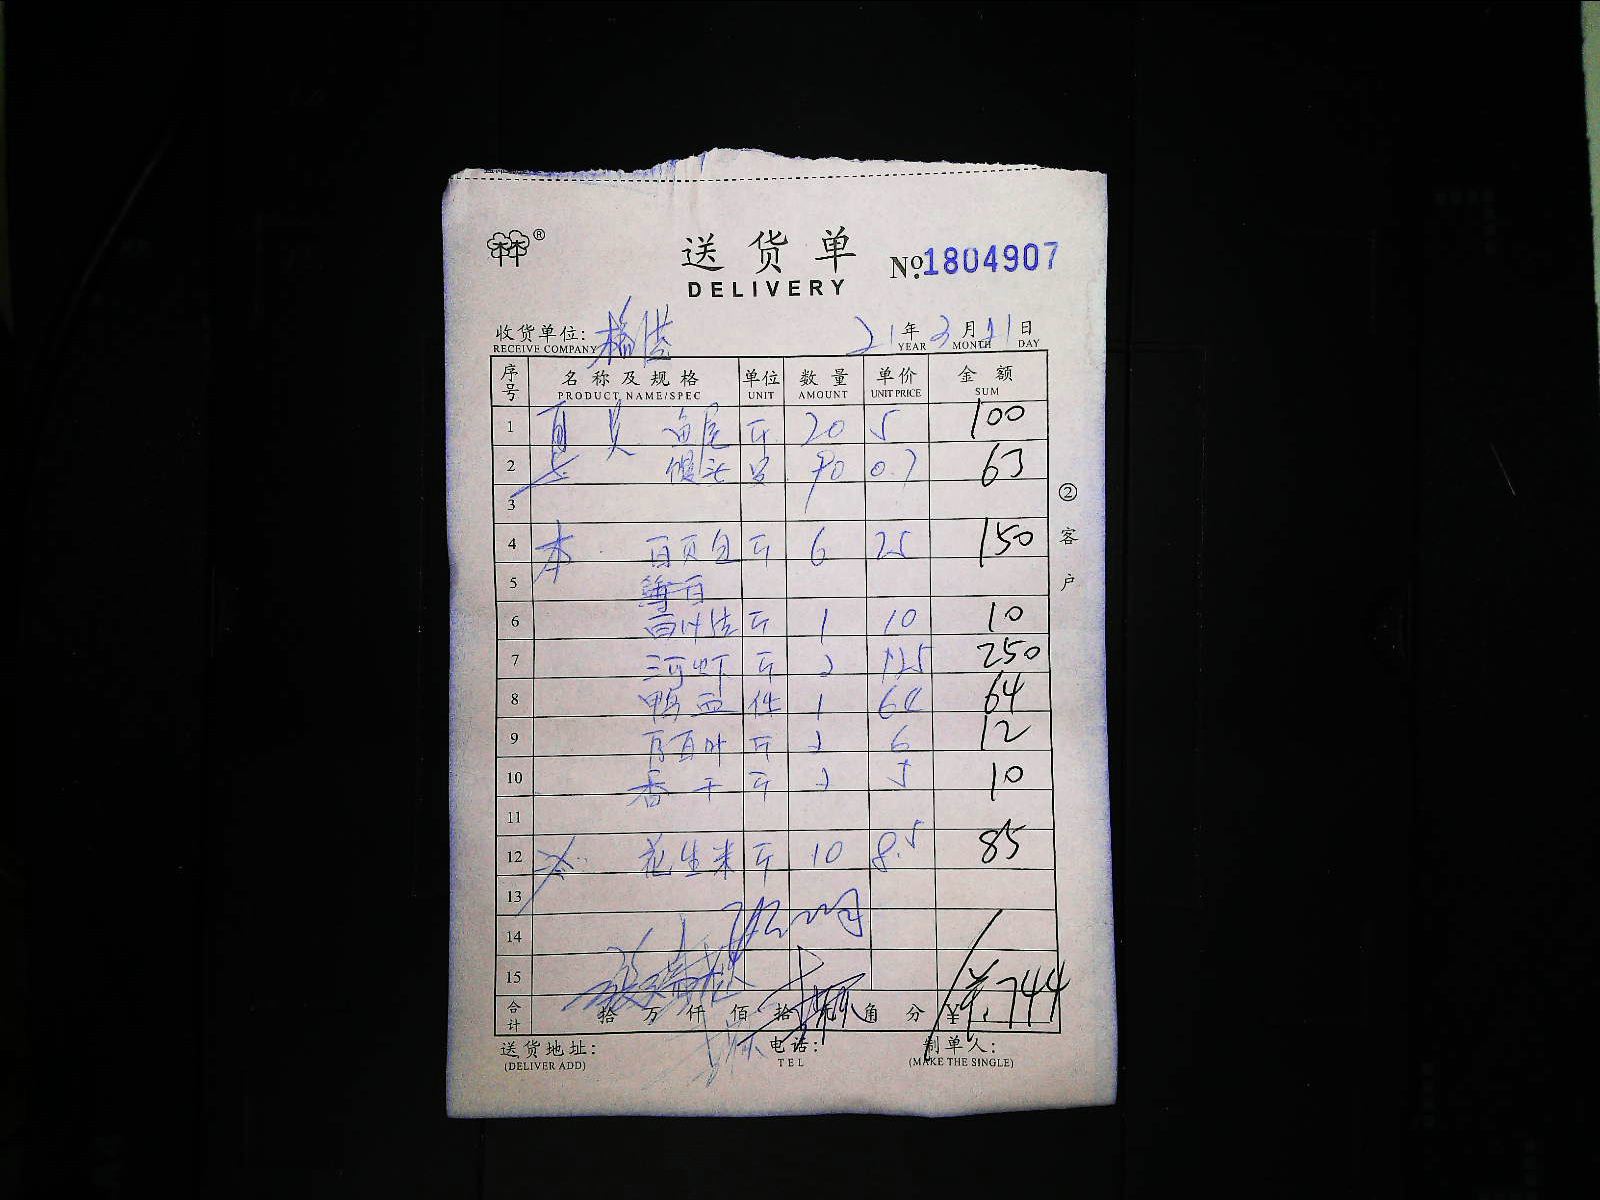 ®
送货单 No.1804907
DELIVERY
收货单位: 21年3月21日
RECEIVE COMPANY YEAR MONTH DAY
序号 名称及规格 单位 数量 单价 金额
PRODUCT NAME/SPEC UNIT AMOUNT UNIT PRICE SUM
1 鱼尾 斤 20 5 100
2 馒头 90 0.7 63
3
4 本 百页包 斤 6 25 150
5
6 斤 1 10 10
7 河虾 斤 2 125 250
8 鸭血 件 1 64 64
9 百叶 斤 2 6 12
10 香干 斤 2 5 10
11
12 花生米 斤 10 8.5 85
13
14
15
合计 拾 万 仟 佰 拾 元 角 分 ¥ 744
送货地址: 电话: 制单人:
(DELIVER ADD) TEL (MAKE THE SINGLE)
②客户